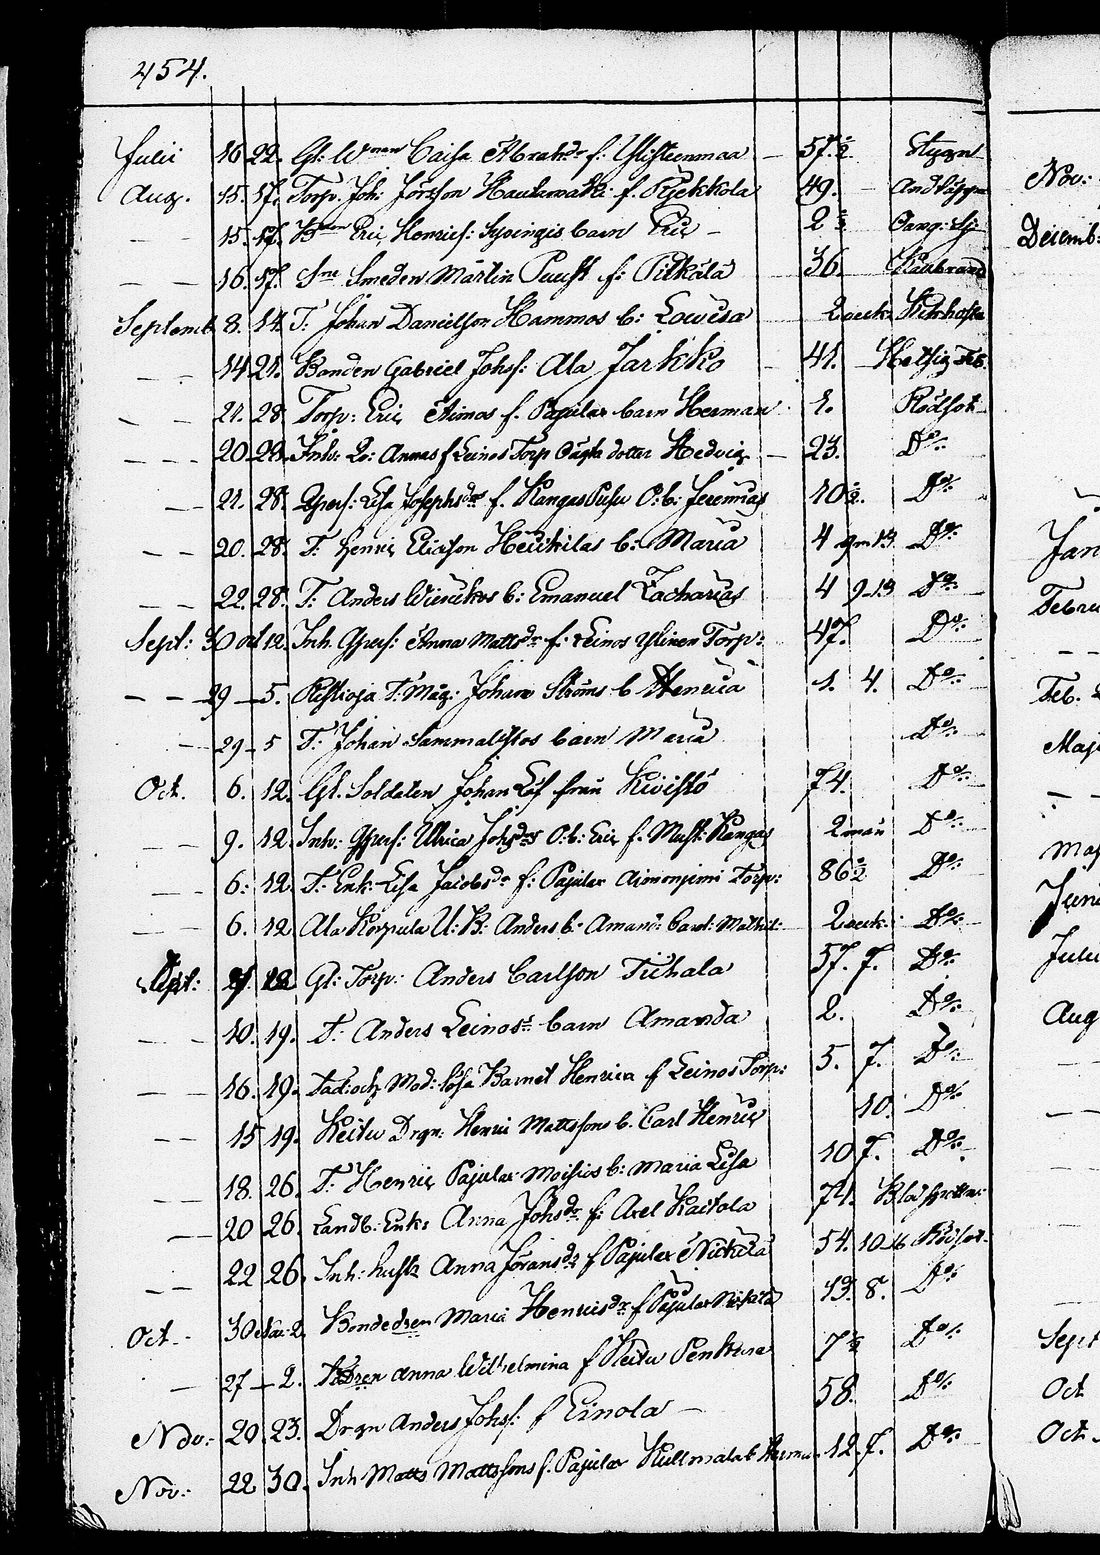 454.
Julii 16 22. Gl: Wman Caisa Abrahdr f: Ylistenmaa 57 1/2 Stygn
Aug. 15. 17. Torp: Joh: Jörsson f. Pyekkola 49.
15. 17. Eric Henrics: barn Eric 2
16. 17. Smeden Mårtin Puust f: Pitkälä 36.
Septemb 8. 14. T: Johan Danielson Hammos b: Lowisa 2 weck: Kikhosta
14 21. Bonden Gabriel Johsf: Ala Jarkko 41.
21. 28. Torp: Eric Aimos f. Pajular barn Herman 1. Rödsot
20. 28. Inh: Annas f Leinos Torp dotter Hedvig 23. Do
21. 28. Lisa Josephsdr f. Kangas O: b: Jeremias 10 1/2. Do
20. 28. T: Henric Ericson Heikilas b: Maria 4 9m 13 Do
22. 28. T: Anders b: Emanuel Zacharias 4 9 13 Do
Sept: 30 oct 12. Inh. Anna Mattsdr f: Leinos Ylinen Torp: 47. Do
29 5. Ristioja T: Måg: Johan Ströms b Henrica 1. 4. Do
29 5 T: Johan barn Maria Do
Oct. 6. 12. Gl. Soldaten Johan Löf från Kivistö 74. Do
9. 12. Inh: Ulrica Johsdrs O: b: Eric f: Must: Kangas 2 mån Do
6: 12. T: Enk: Lisa Jacobsdr f: Pajular Aimonjimi Torp: 86 1/2 Do
6. 12 Ala Korpula U: B: Anders b: Amand: Carol: Mathil: 2 weck: Do
Sept: 12 Gl: Torp: Anders Carlson Tuhala 57. 7. Do
10. 19. T: Anders Leinos barn Amanda 2. Do
16. 19. Fad: och Mod: lösa Barnet Henrica f Leinos Torp: 5. 7. Do
15 19. Keitu Drgn: Henric Mattssons b. Carl Henric 10. Do
18. 26. T: Henric Pajular Moisios b: Maria Lisa 10 7. Do
20 26. Landb: Enk: Anna Johsdr f: Axel Kaitola 74.
22 26. Inh: hustr Anna Göransdr f Pajular Nickälä 54. 10 16 Rödsot
Oct 30 Nov: 2. Bondedren Maria Henricsdr f Pajular Nickälä 13 8. Do
27 2. Anna Wilhelmina f Keitu Penttura 7 1/2 Do
Nov: 20 23. Drgn Anders Johsf: f Einola 58. Do
Nov: 22 30. Inh Matts Mattssons f. Pajular b Herma 12. 7. Do
Nov:
Decemb:
Jan
Febru
Feb.
Maj
Maj
Juni
Julii
Aug
Sept
Oct
Oct.